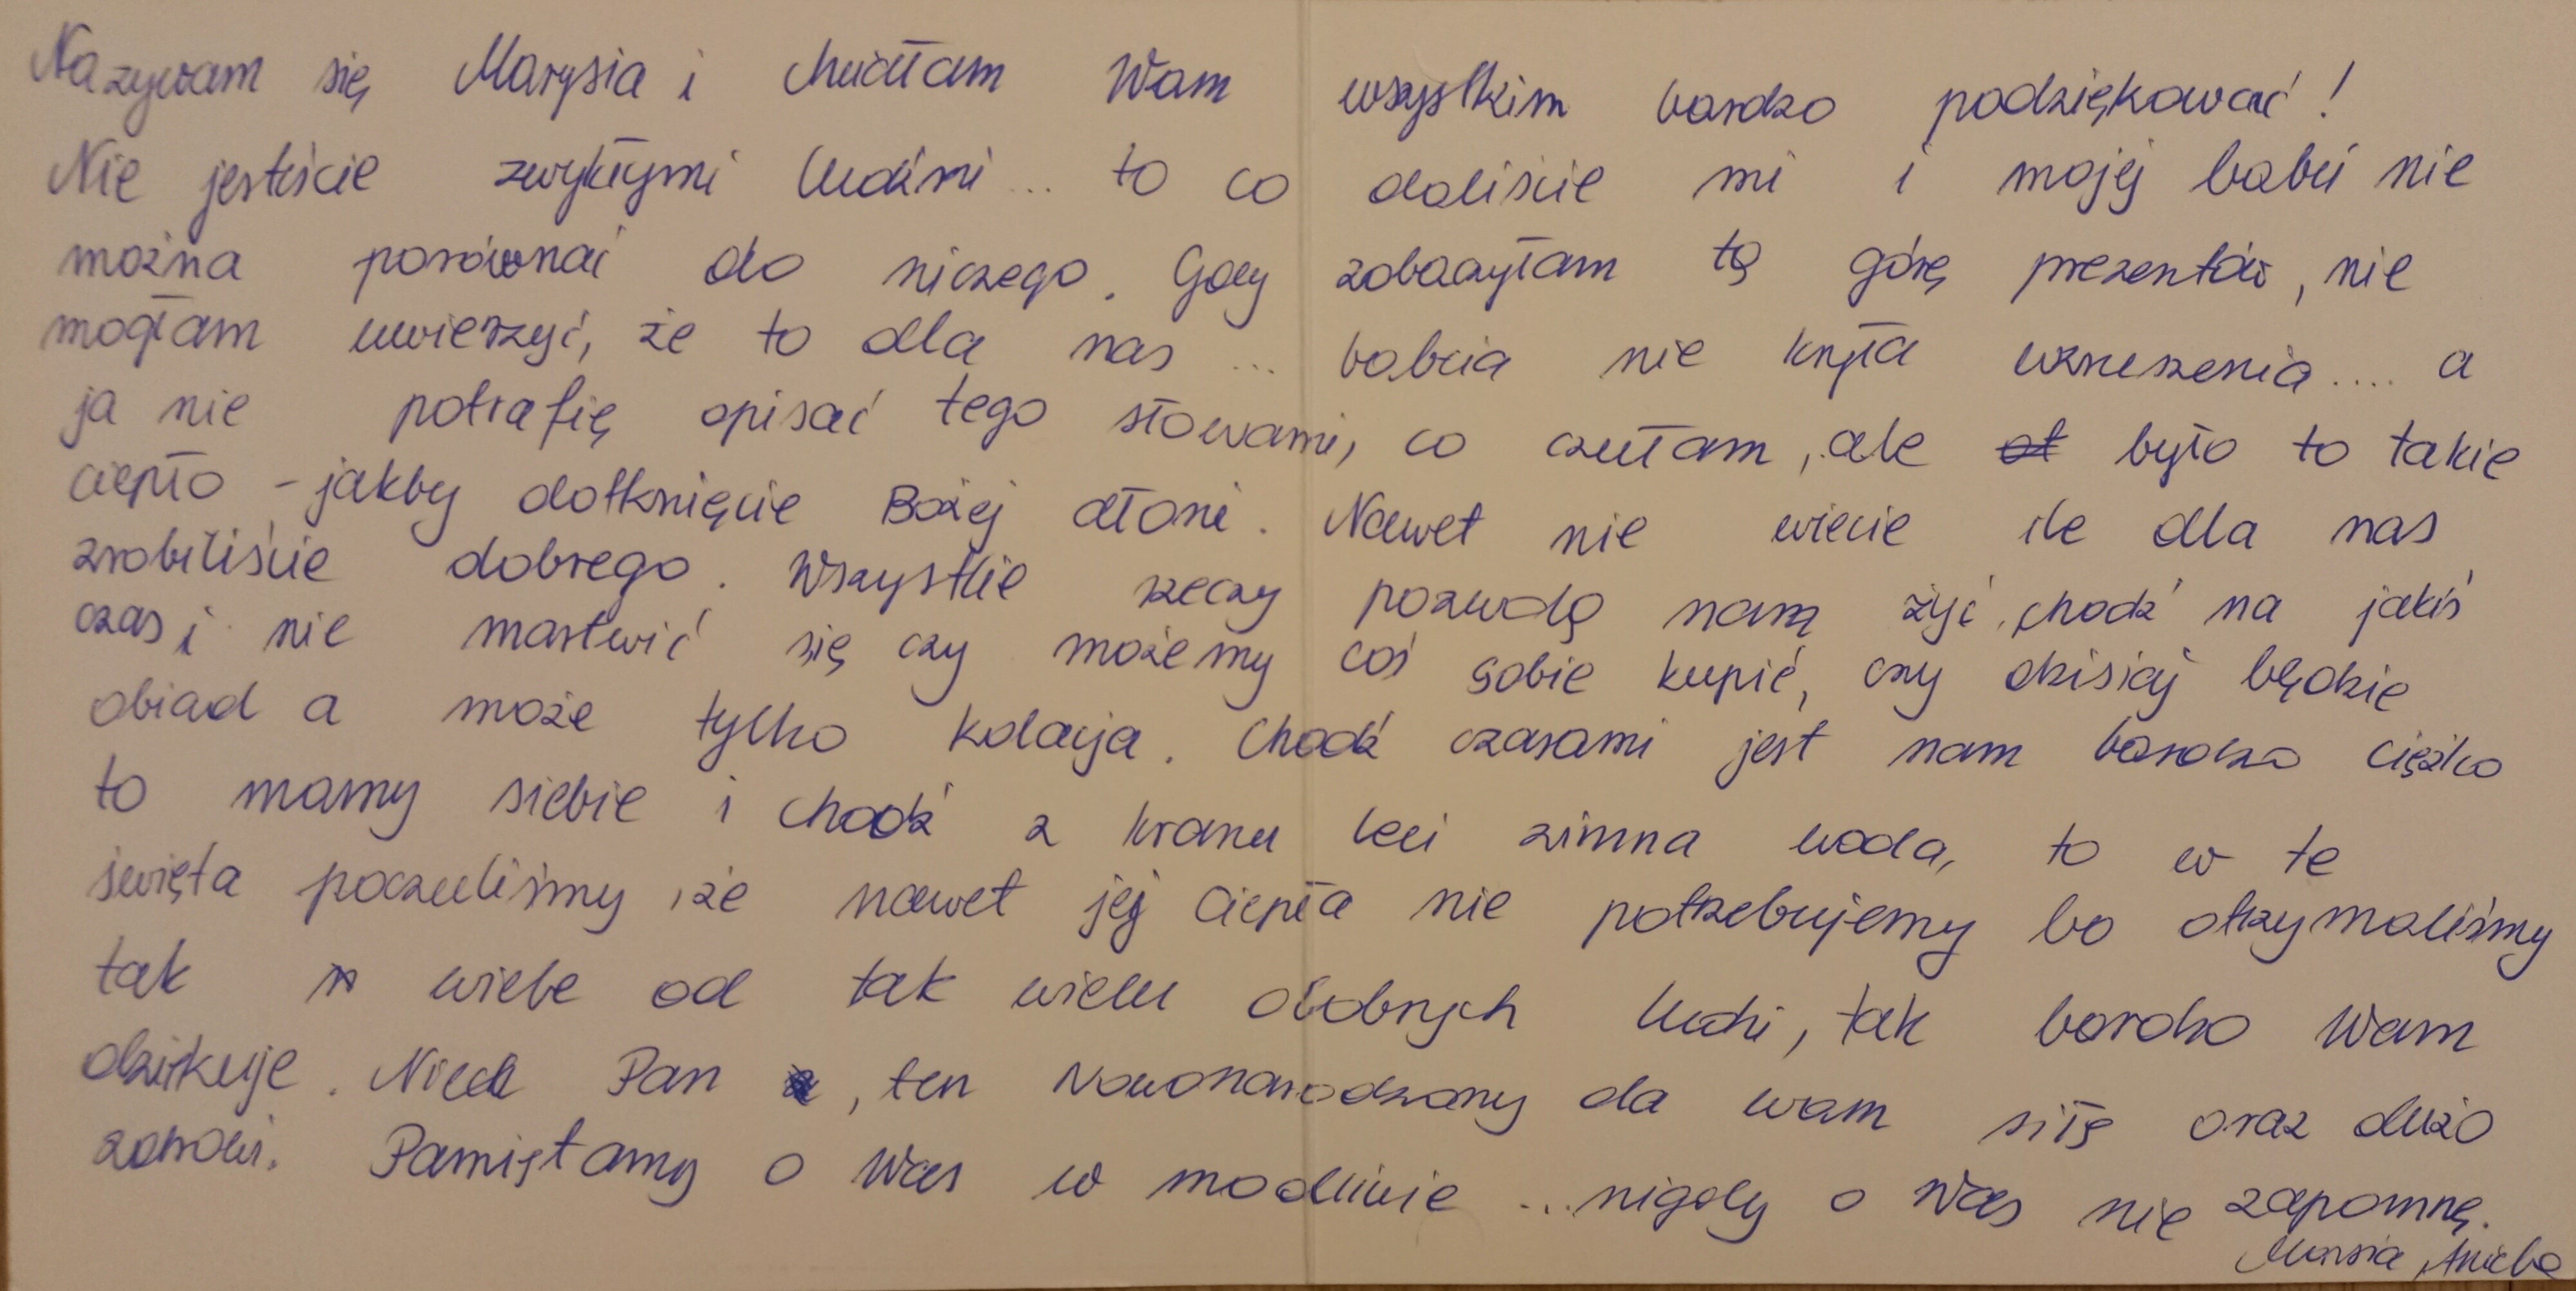 Nazywam się Marysia i chciałam Wam wszystkim bardzo podziękować!
Nie jesteście zwykłymi ludźmi... to co daliście mi i mojej babci nie
można porównać do niczego. Gdy zobaczyłam tę górę prezentów, nie
mogłam uwierzyć, że to dla nas... babcia nie kryła wzruszenia.... a
ja nie potrafię opisać tego słowami, co czułam, ale było to takie
ciepło - jakby dotknięcie Bożej dłoni. Nawet nie wiecie ile dla nas
zrobiliście dobrego. Wszystkie rzeczy pozwolą nam żyć, chodź na jakiś
czas i nie martwić się czy możemy coś sobie kupić, czy dzisiaj będzie
obiad a może tylko kolacja. Chodź czasami jest nam bardzo ciężko
to mamy siebie i chodź z kranu leci zimna woda, to w te
święta poczuliśmy, że nawet jej ciepła nie potrzebujemy bo otrzymaliśmy
tak wiele od tak wielu dobrych ludzi, tak bardzo Wam
dziękuje. Niech Pan, ten Nowonarodzony da wam siłę oraz dużo
zdrowia. Pamiętamy o Was w modlitwie ...nigdy o Was nie zapomnę.
Marysia, Aniela